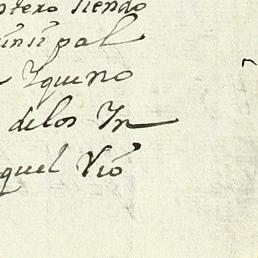 ntero siendo
insipal
Yqueno
delos Yn
quel Vió